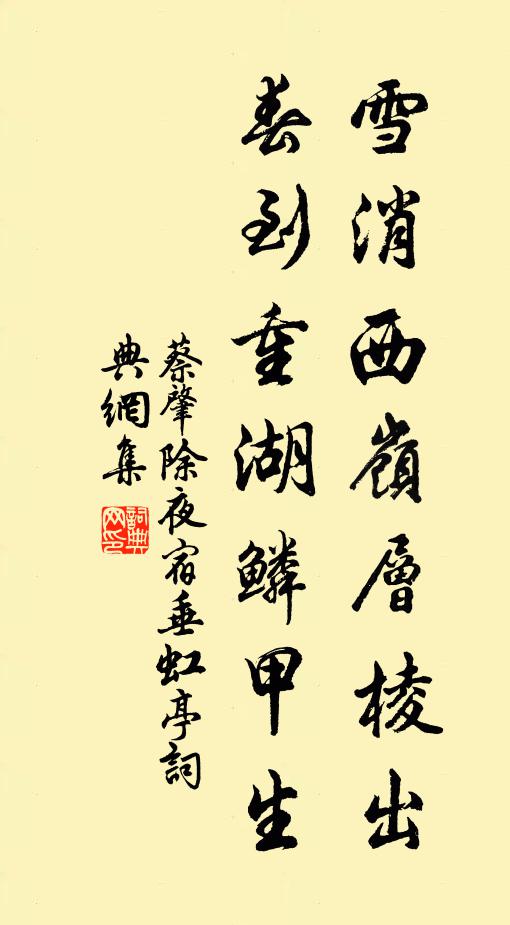 雪消西嶺層棱出
春到重湖鱗甲生
蔡肇除夜宿垂虹亭詞
典網集
詞典
网印